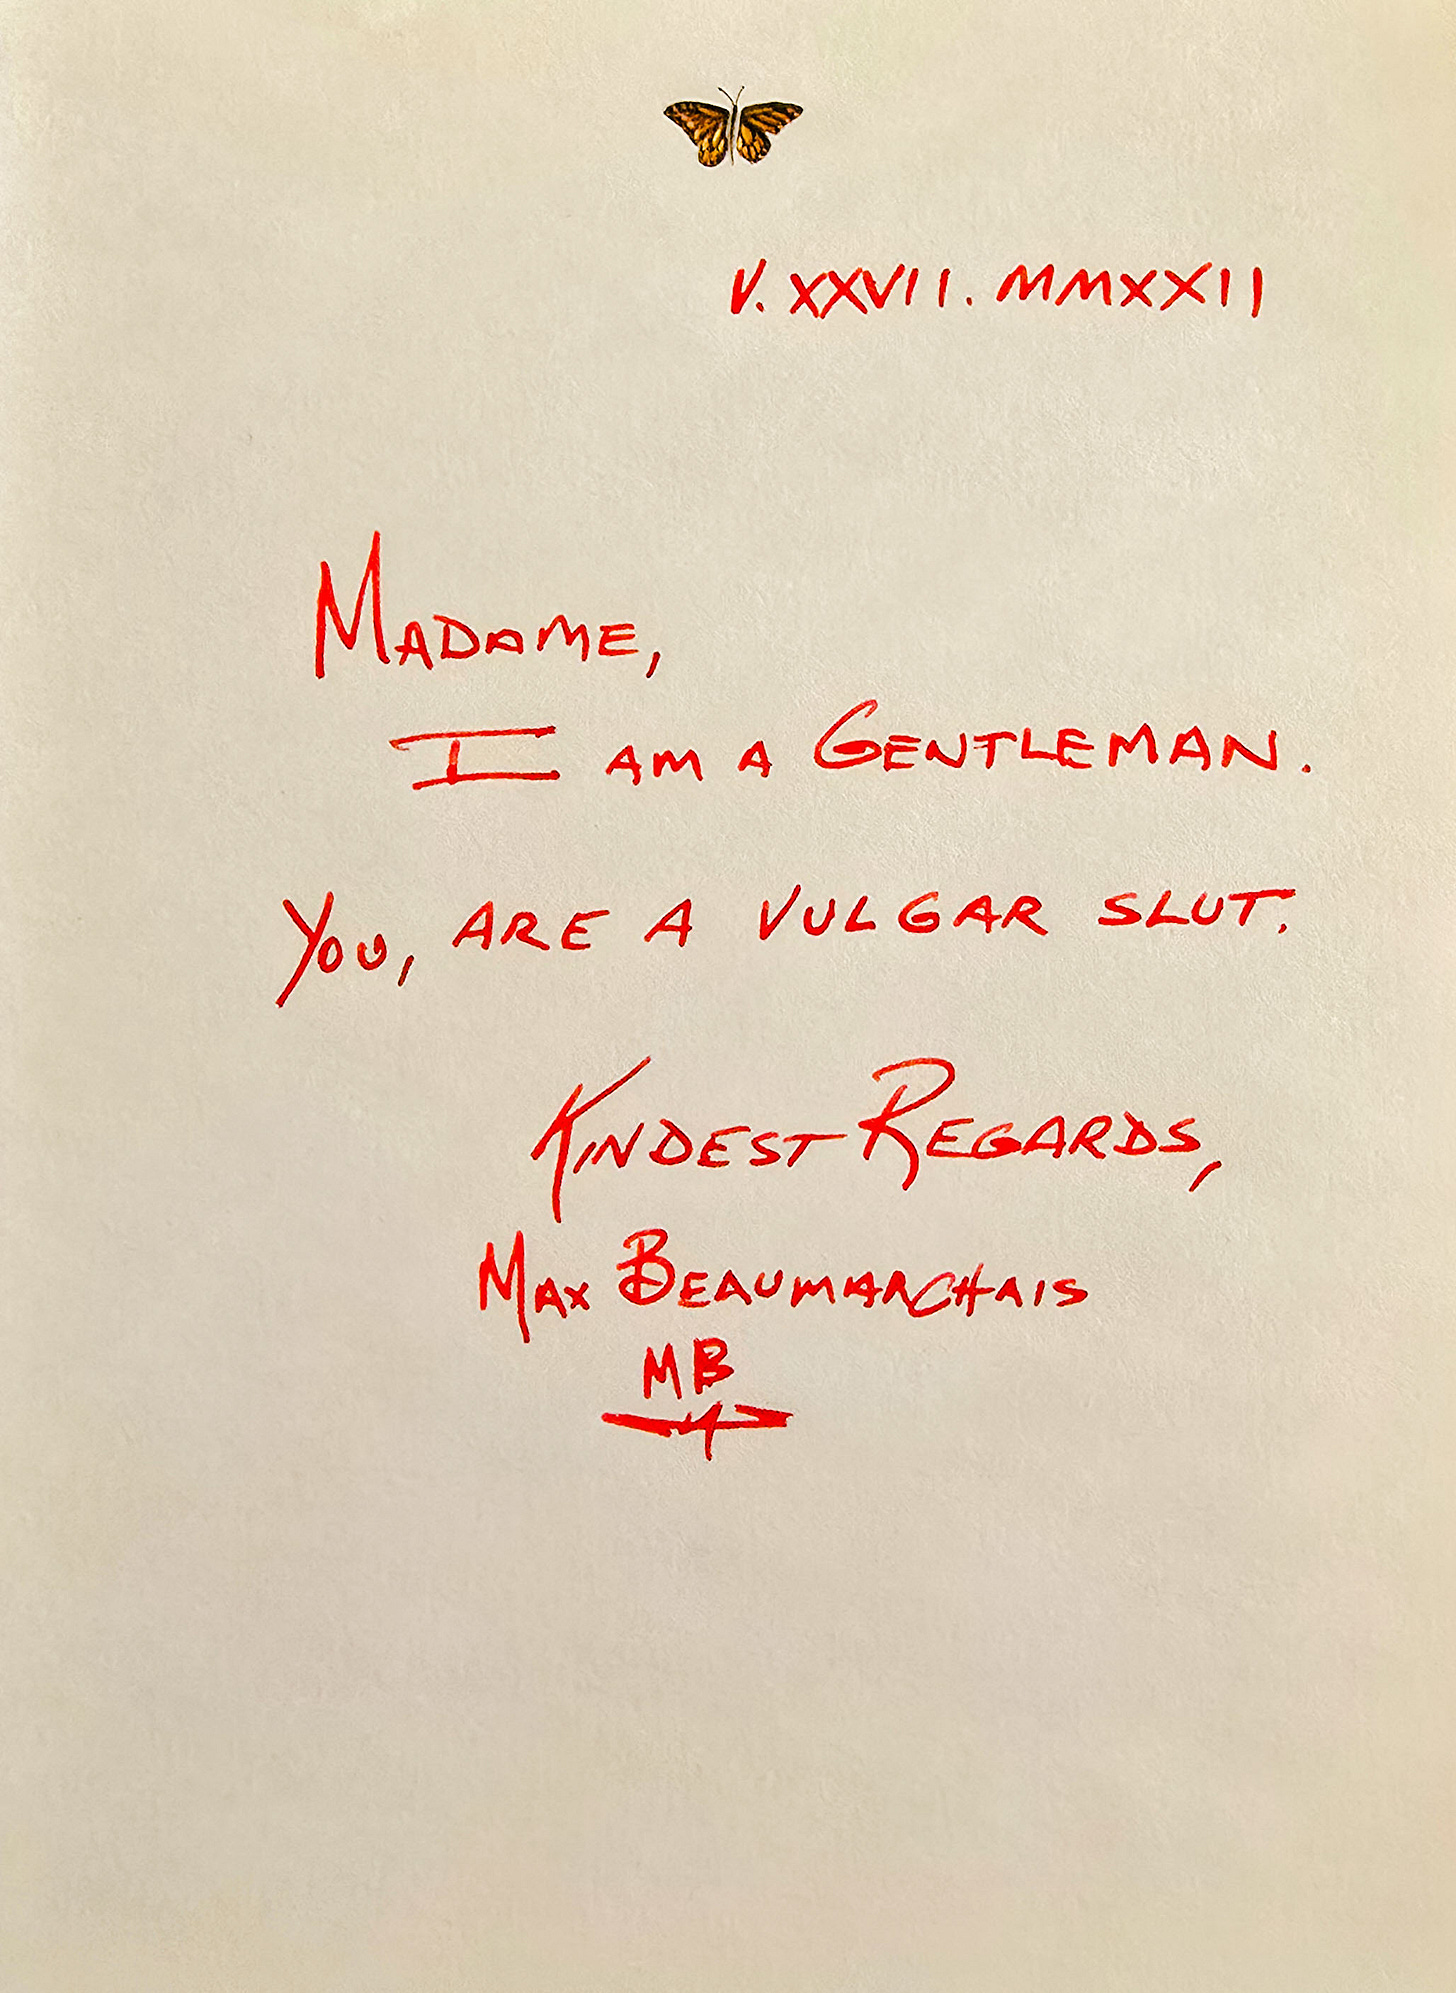 V. XXVII. MMXXII
MADAME,
I AM A GENTLEMAN.
YOU, ARE A VULGAR SLUT.
KINDEST REGARDS,
MAX BEAUMARCHAIS
MB